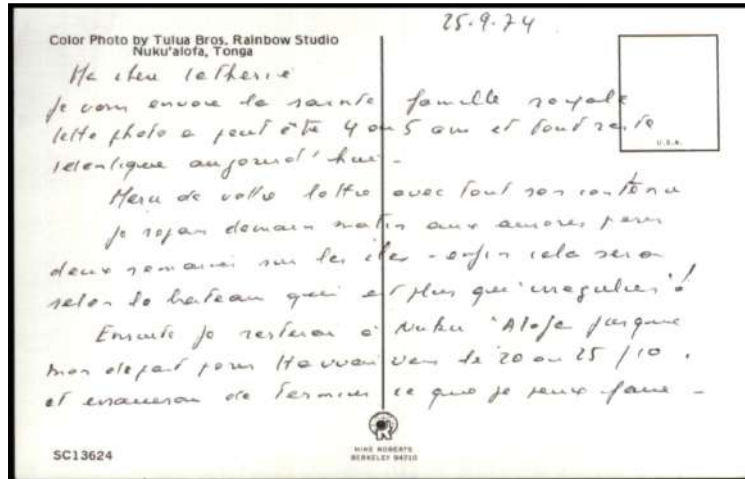 25.9.74
Color Photo by Tulua Bros, Rainbow Studio
Nuku'alofa, Tonga
U.S.A.
Ma chere Catherine
Je vous envoie la sainte famille royale
Cette photo a peut être 4 ou 5 ans et tout reste
identique aujourd'hui -
Merci de votre lettre avec tout son contenu
Je repars demain matin aux aurores pour
deux semaines sur les iles - enfin cela sera
selon le bateau qui est plus qu'irregulier !
Ensuite je resterai à Nuku 'Alofa jusque
mon depart pour Hawaii vers le 20 ou 25 /10 .
et de terminer ce que je peux faire -
SC13624
MIKE ROBERTS
BERKELEY 94710